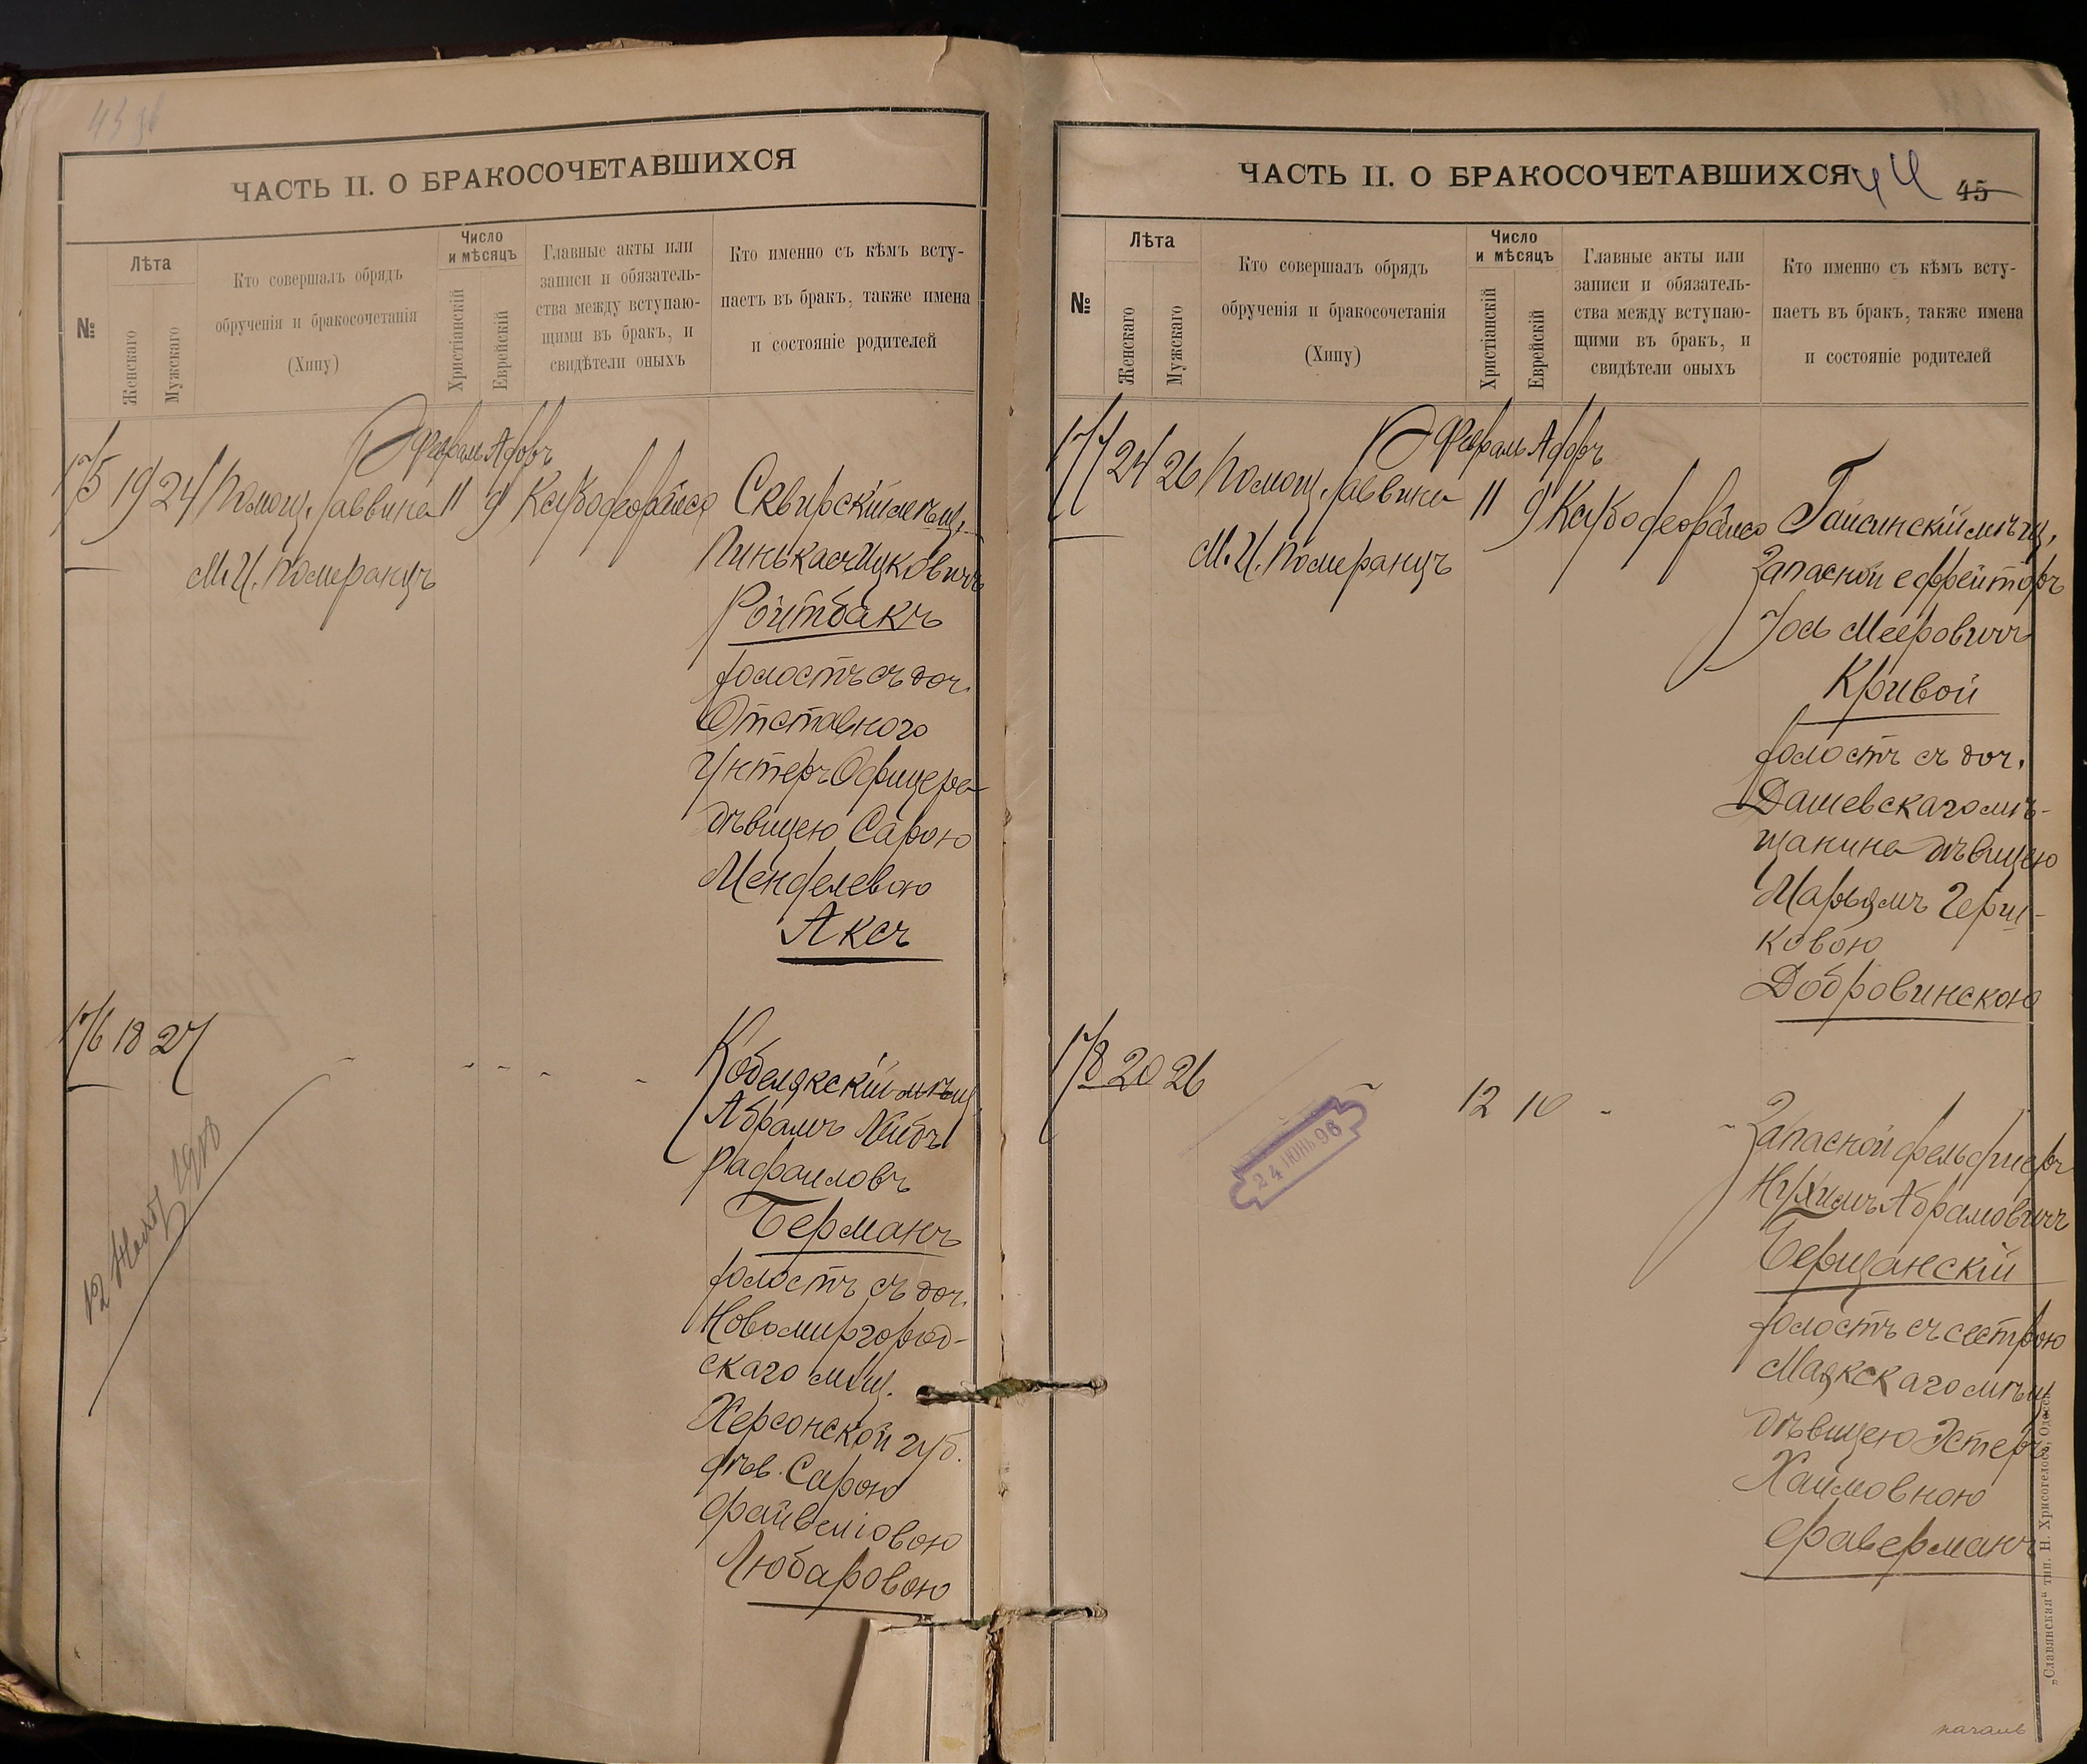 43 об
ЧАСТЬ II. О БРАКОСОЧЕТАВШИХСЯ
№
Лѣта
Женскаго
Мужскаго
Кто совершалъ обрядъ
обрученія и бракосочетанія
(Хипу)
Число
и мѣсяцъ
Христіанскій
Еврейскій
Главные акты или
записи и обязатель-
ства между вступаю-
щими въ бракъ, и
свидѣтели оныхъ
Кто именно съ кѣмъ всту-
паетъ въ бракъ, также имена
и состояніе родителей
Февраль Адоръ
175 19 24 Помощ. раввина 11 9
М. И. Померанцъ
Сквирскій мѣщ.
Пинькасъ Ицковичъ
Ройтбакъ
холостъ съ доч.
Отставного
Унтеръ Офицера
дѣвицею Сарою
Менделевою
Аксъ
176 18 27 - - - - -
Кобелякскій мѣщ.
Абрамъ Лейбъ
Рафаиловъ
Берманъ
холостъ съ доч.
Новомиргород-
скаго мѣщ.
Херсонской губ.
дѣв. Сарою
Файвелiовою
Любаровою
ЧАСТЬ II. О БРАКОСОЧЕТАВШИХСЯ
44 45
№
Лѣта
Женскаго
Мужскаго
Кто совершалъ обрядъ
обрученія и бракосочетанія
(Хипу)
Число
и мѣсяцъ
Христіанскій
Еврейскій
Главные акты или
записи и обязатель-
ства между вступаю-
щими въ бракъ, и
свидѣтели оныхъ
Кто именно съ кѣмъ всту-
паетъ въ бракъ, также имена
и состояніе родителей
Февраль Адоръ
177 24 26 Помощ. раввина 11 9
М. И. Померанцъ
Гайсинскій мѣщ.
Запасной ефрейторъ
Іось Мееровичъ
Кривой
холостъ съ доч.
Дашевскаго мѣ-
щанина дѣвицею
Марьямъ Герш-
ковою
Добровинскою
178 20 26 - 12 10 - -
24 ІЮНЬ 98
Запасной фельдшеръ
Нухимъ Абрамовичъ
Берщанскій
холостъ съ сестрою
Маякскаго мѣщ.
дѣвицею Эстеръ
Хаимовною
Фаверманъ
„Славянская“ тип. Н. Хрисогелосъ, Одесса